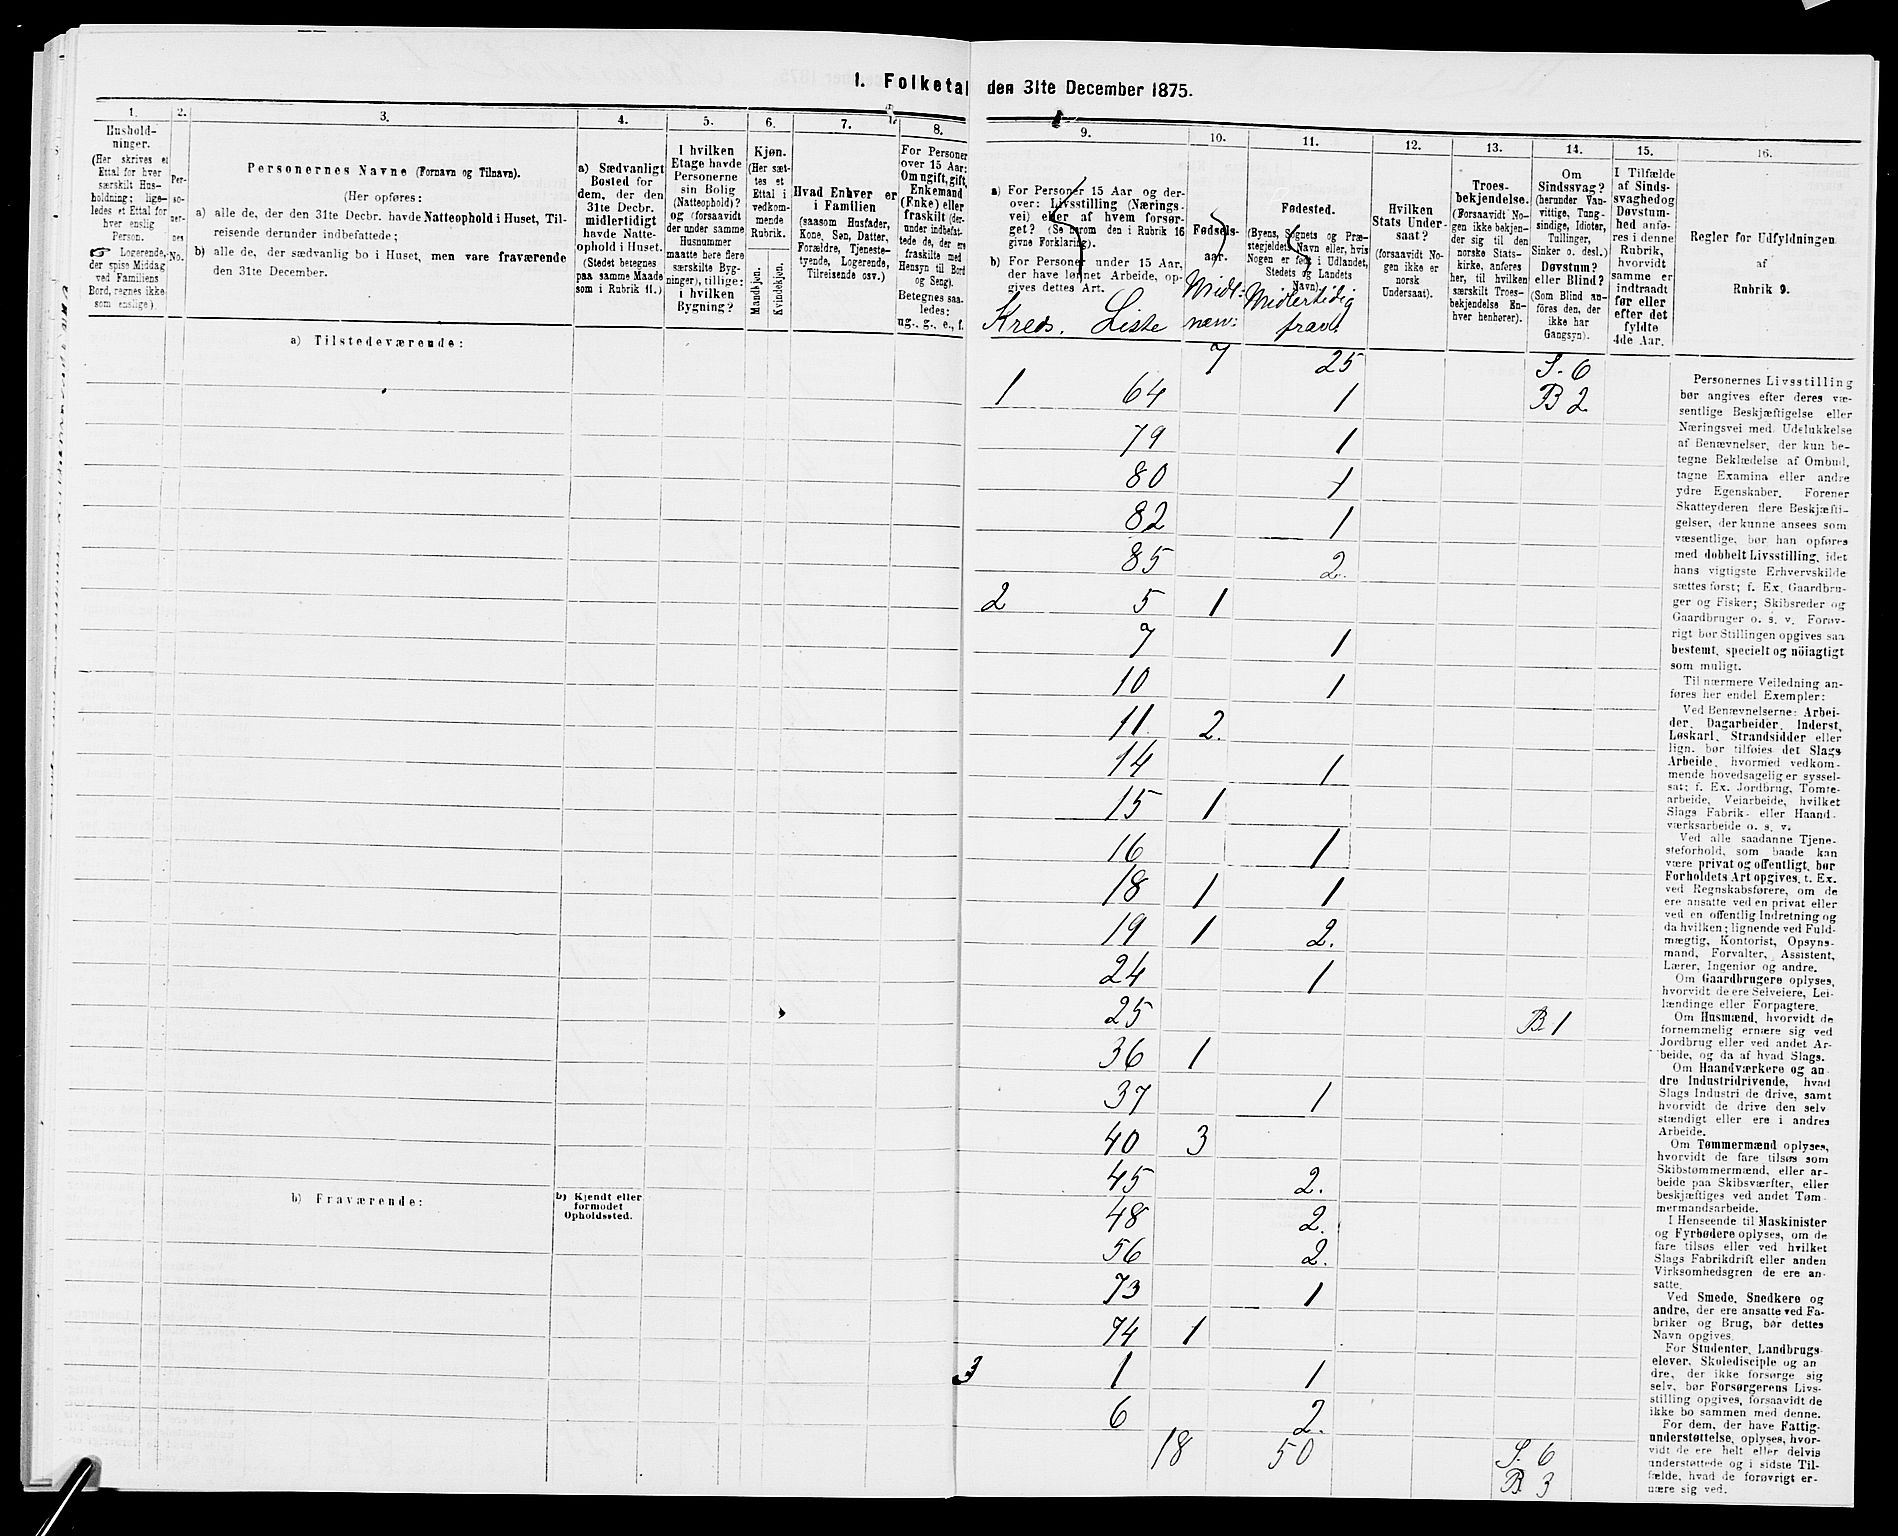 1. Folketal den 31te December 1875.
1.
Hushold-
ninger.
(Her skrives et
Ettal for hver
særskilt Hus-
holdning; lige-
ledes et Ettal for
hver enslig
Person.
☞ Logerende,
der spise Middag
ved Familiens
Bord, regnes ikke
som enslige.)
2.
Per-
so-
ner-
nes
No.
3.
Personernes Navne (Fornavn og Tilnavn).
(Her opføres:
a) alle de, der den 31te Decbr. havde Natteophold i Huset, Til-
reisende derunder indbefattede;
b) alle de, der sædvanlig bo i Huset, men vare fraværende
den 31te December.
4.
a) Sædvanligt
Bosted for
dem, der den
31te Decbr.
midlertidigt
havde Natte-
ophold i Huset.
(Stedet betegnes
paa samme Maade
som i Rubrik 11.)
5.
I hvilken
Etage havde
Personerne
sin Bolig
(Natteophold)?
og (forsaavidt
der under samme
Husnummer
maatte høre flere
særskilte Byg-
ninger), tillige:
i hvilken
Bygning?
6.
Kjøn.
(Her sæt-
tes et
Ettal i
vedkom-
mende
Rubrik.
Mandkjøn.
Kvindekjøn.
7.
Hvad Enhver er
i Familien
(saasom Husfader,
Kone, Søn, Datter,
Forældre, Tjeneste-
tyende, Logerende,
Tilreisende osv.)
8.
For Personer
over 15 Aar:
Om ugift, gift,
Enkemand
(Enke) eller
fraskilt (der-
under indbefat-
tede de, der ere
fraskilte med
Hensyn til Bord
og Seng).
Betegnes saa-
ledes:
ug., g., e., f.
9.
a) For Personer 15 Aar og der-
over: Livsstilling (Nærings-
vei) eller af hvem forsør-
get? (Se herom den i Rubrik 16
givne Forklaring).
b) For Personer under 15 Aar,
der have lønnet Arbeide, op-
gives dettes Art.
10.
Fødsels-
aar.
11.
Fødested.
(Byens, Sognets og Præ-
stegjeldets Navn eller, hvis
Nogen er født i Udlandet,
Stedets og Landets
Navn).
12.
Hvilken
Stats Under-
saat?
(forsaavidt No-
gen ikke er
norsk
Undersaat).
13.
Troes-
bekjendelse.
(Forsaavidt No-
gen ikke bekjen-
der sig til den
norske Stats-
kirke, anføres
her, til hvilken
særskilt Troes-
bekjendelse En-
hver henhører).
14.
Om
Sindssvag?
(herunder Van-
vittige, Tung-
sindige, Idioter,
Tullinger,
Sinker o. desl.)
Døvstum?
eller Blind?
(Som Blind an-
føres den, der
ikke har
Gangsyn).
15.
I Tilfælde
af Sinds-
svaghed og
Døvstum-
hed anfø-
res i denne
Rubrik,
hvorvidt
samme er
indtraadt
før eller
efter det
fyldte
4de Aar.
16.
Regler for Udfyldningen
af
Rubrik 9.
Kreds. Liste Midl: næv: Midlertidig frav:
a) Tilstedeværende:
7 25 S. 6
1 64 1 B 2
79 1
80 1
82 1
85 2.
2 5 1
7 1
10 1
11 2.
14 1
15 1
16 1
18 1 1
19 1 2.
24 1
25 B 1
36 1
37 1
40 3
45 2.
48 2.
56 2.
73 1
74 1
3 1 1
6 2.
18 50 S. 6
B. 3
b) Fraværende:
b) Kjendt eller
formodet
Opholdssted.
Personernes Livsstilling
bør angives efter deres væ-
sentlige Beskjæftigelse eller
Næringsvei med Udelukkelse
af Benævnelser, der kun be-
tegne Beklædelse af Ombud,
tagne Examina eller andre
ydre Egenskaber. Forener
Skatteyderen flere Beskjæfti-
gelser, der kunne ansees som
væsentlige, bør han opføres
med dobbelt Livsstilling, idet
hans vigtigste Erhvervskilde
sættes først; f. Ex. Gaardbru-
ger og Fisker; Skibsreder og
Gaardbruger o. s. v. Forøv-
rigt bør Stillingen opgives saa
bestemt, specielt og nøiagtigt
som muligt.
Til nærmere Veiledning an-
føres her endel Exempler:
Ved Benævnelserne: Arbei-
der, Dagarbeider, Inderst,
Løskarl, Strandsidder eller
lign. bør tilføies det Slags
Arbeide, hvormed vedkom-
mende hovedsagelig er syssel-
sat; f. Ex. Jordbrug, Tomte-
arbeide, Veiarbeide, hvilket
Slags Fabrik- eller Haand-
værksarbeide o. s. v.
Ved alle saadanne Tjene-
steforhold, som baade kan
være privat og offentligt, bør
Forholdets Art opgives, t. Ex.
ved Regnskabsførere, om de
ere ansatte ved en privat eller
ved en offentlig Indretning og
da hvilken; lignende ved Fuld-
mægtig, Kontorist, Opsyns-
mand, Forvalter, Assistent,
Lærer, Ingeniør og andre.
Om Gaardbrugere oplyses,
hvorvidt de ere Selveiere, Lei-
lændinge eller Forpagtere.
Om Husmænd, hvorvidt de
fornemmelig ernære sig ved
Jordbrug eller ved andet Ar-
beide, og da af hvad Slags.
Om Haandværkere og an-
dre Industridrivende, hvad
Slags Industri de drive, samt
hvorvidt de drive den selv-
stændigt eller ere i andres
Arbeide.
Om Tømmermænd oplyses,
hvorvidt de fare tilsøs som
Skibstømmermænd, eller ar-
beide paa Skibsværfter, eller
beskjæftiges ved andet Tøm-
mermandsarbeide.
I Henseende til Maskinister
og Fyrbødere oplyses, om de
fare tilsøs eller ved hvilket
Slags Fabrikdrift eller anden
Virksomhedsgren de ere an-
satte.
Ved Smede, Snedkere og
andre, der ere ansatte ved Fa-
briker og Brug, bør dettes
Navn opgives.
For Studenter, Landbrugs-
elever, Skoledisciple og an-
dre, der ikke forsørge sig
selv, bør Forsørgerens Livs-
stilling opgives, forsaavidt de
ikke bo sammen med denne.
For dem, der have Fattig-
understøttelse, oplyses, hvor-
vidt de ere helt eller delvis
understøttede og i sidste Til-
fælde, hvad de forøvrigt er-
nære sig ved.